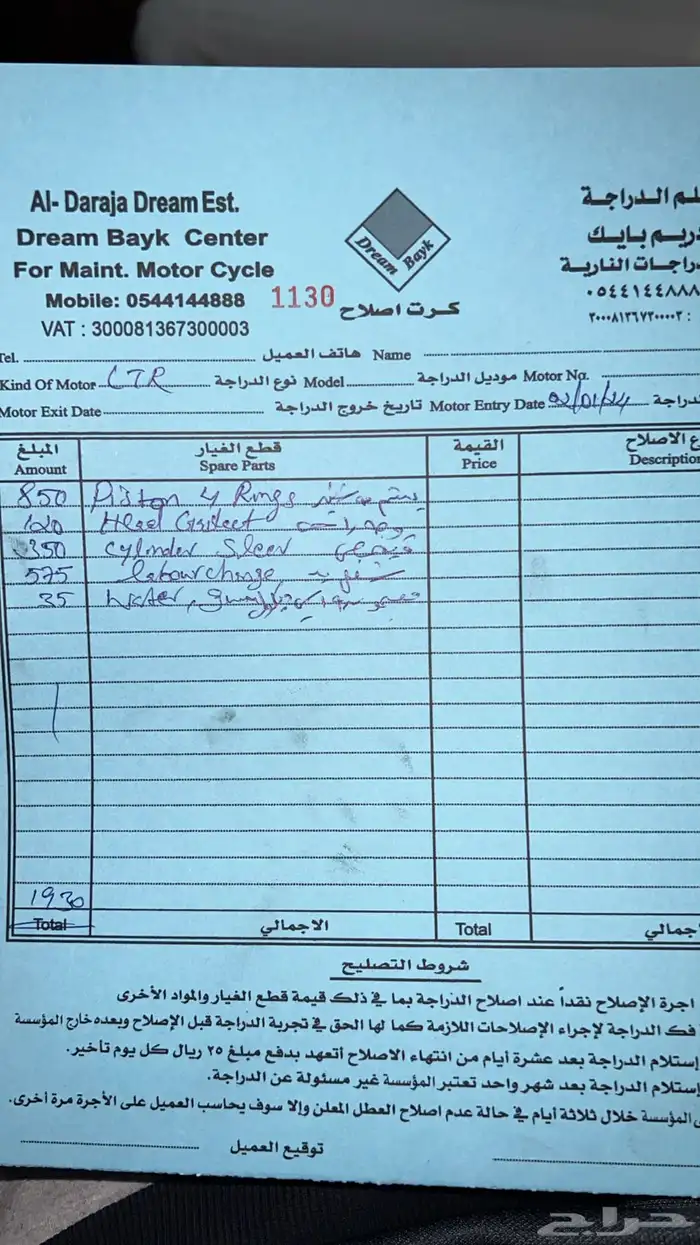 Al- Daraja Dream Est.
Dream Bayk Center
For Maint. Motor Cycle
Mobile: 0544144888
VAT : 300081367300003
Dream Bayk
1130
كرت اصلاح
لم الدراجة
دريم بايك
دراجات النارية
٠٥٤٤١٤٤٨٨٨
٣٠٠٠٨١٣٦٧٣٠٠٠٠٣ :
Tel. هاتف العميل Name
Kind Of Motor CTR نوع الدراجة Model موديل الدراجة Motor No.
Motor Exit Date تاريخ خروج الدراجة Motor Entry Date 02/01/24 الدراجة
المبلغ قطع الغيار القيمة ع الاصلاح
Amount Spare Parts Price Description
850 Piston & Rings
120 Head Gasket
350 Cylinder Sleev
575 labour charge
35 water,
1930
Total الاجمالي Total جمالي
شروط التصليح
اجرة الإصلاح نقداً عند اصلاح الدراجة بما في ذلك قيمة قطع الغيار والمواد الأخرى
فك الدراجة لإجراء الإصلاحات اللازمة كما لها الحق في تجربة الدراجة قبل الإصلاح وبعده خارج المؤسسة
إستلام الدراجة بعد عشرة أيام من انتهاء الاصلاح أتعهد بدفع مبلغ ٢٥ ريال كل يوم تأخير.
إستلام الدراجة بعد شهر واحد تعتبر المؤسسة غير مسئولة عن الدراجة.
المؤسسة خلال ثلاثة أيام في حالة عدم اصلاح العطل المعلن وإلا سوف يحاسب العميل على الأجرة مرة أخرى.
توقيع العميل
حراج